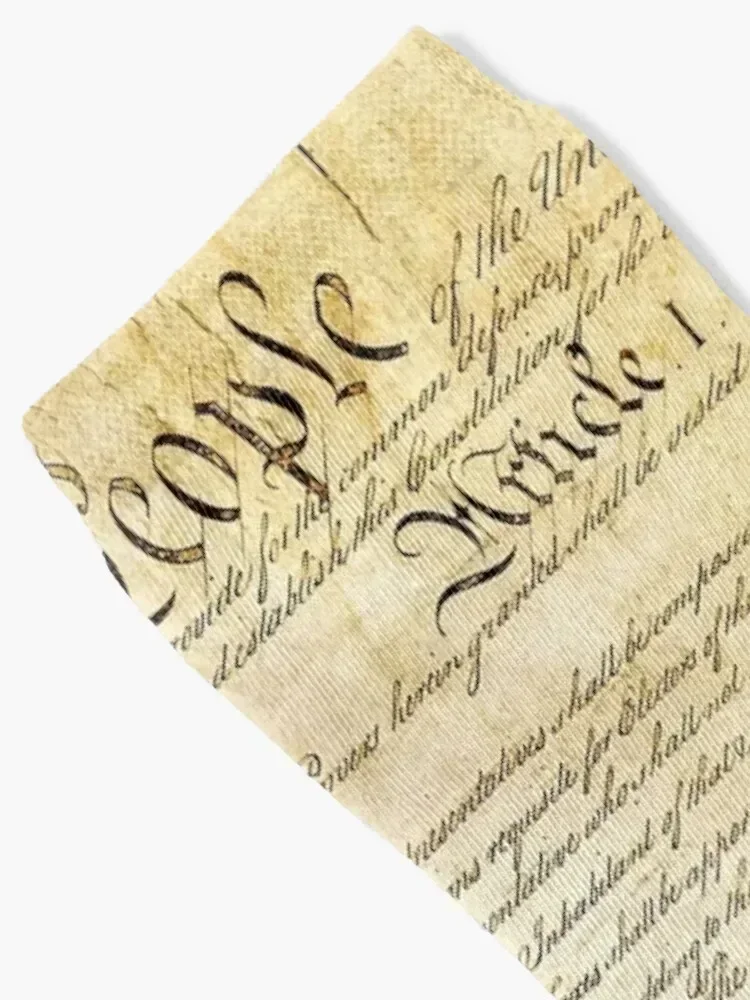 People of the Un
defence, prom
provide for the common
establish this Constitution for the
Article . I .
Powers herein granted shall be vested
presentatives shall be compose
ons requisite for Electors of the
entative who shall not
Inhabitant of that
axes shall be appor
dding to the
The